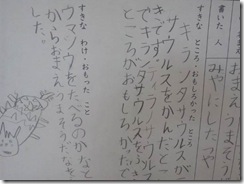 おまえうまそう
書いた 人
みやにしたつや
すきな ところ・おもしろかった ところ
キランタサウルスが
サウルスをかんだとこ
きです。ティラノサウルス
でキランタサウルスをふき
ところがおもしろかった
すきな わけ・おもった こと
ウマソウをたべるのかなと
からおまえうまそうだなを
した。